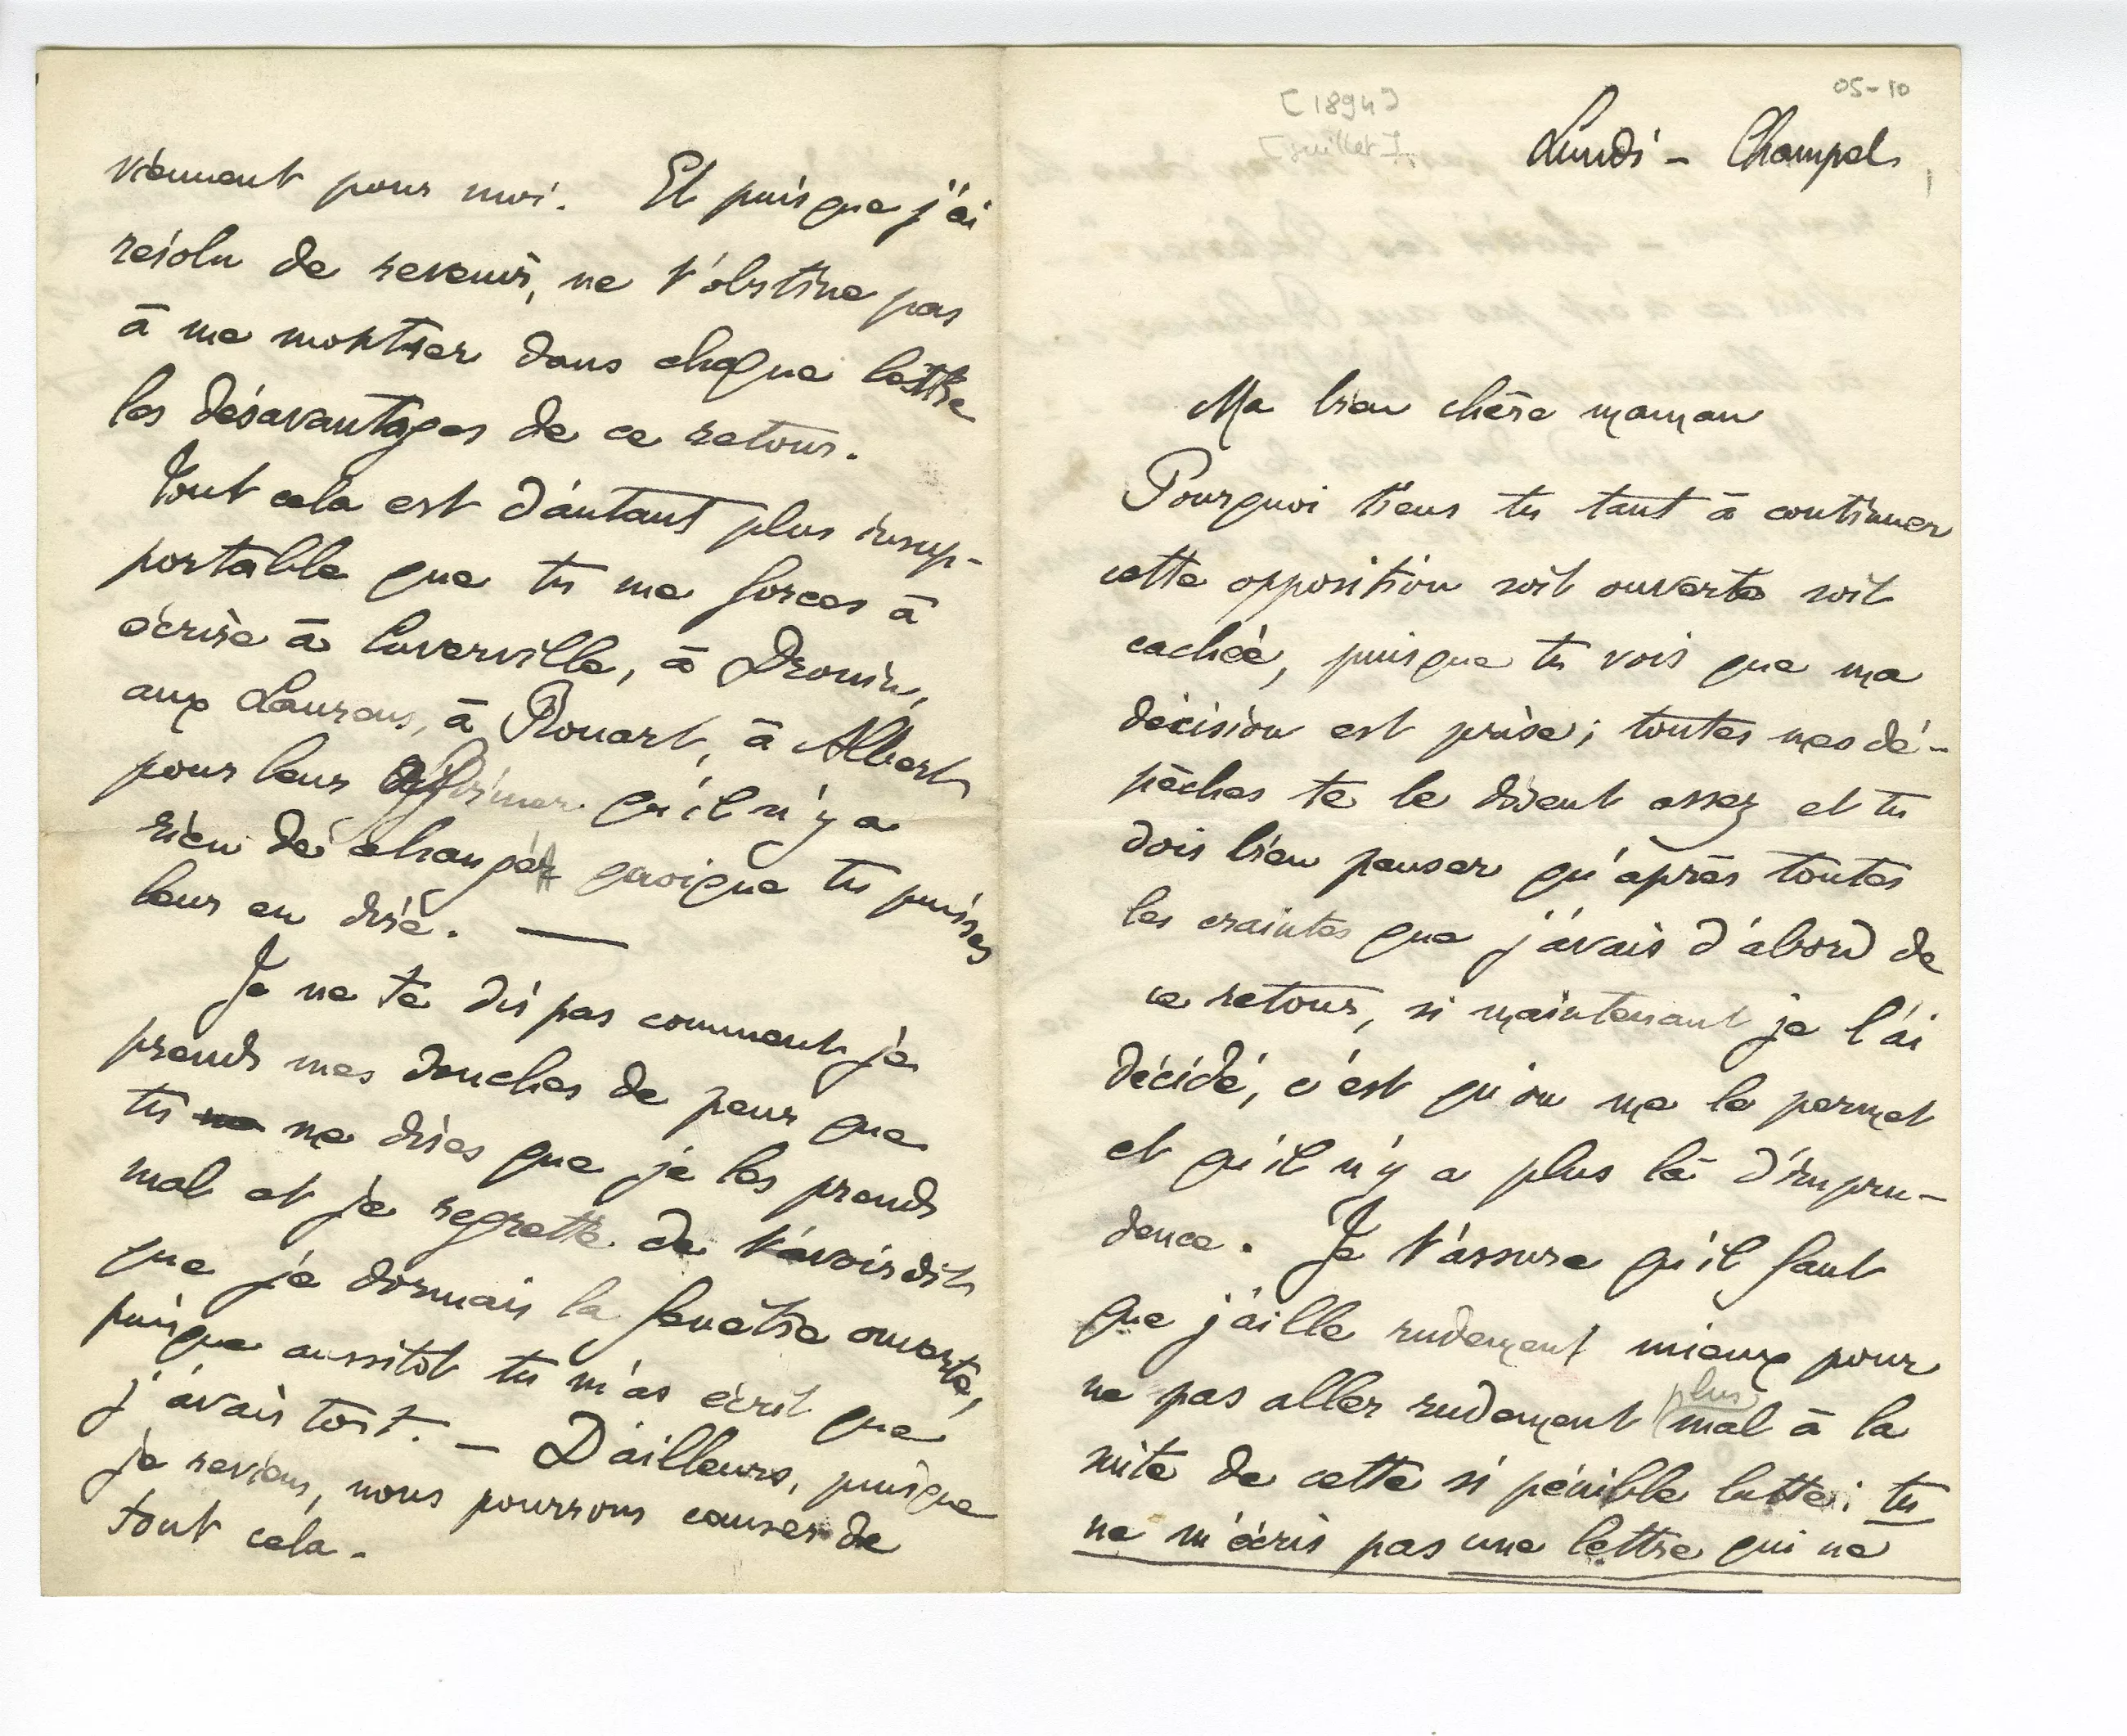 05-10
[1894]
[juillet].
Lundi – Champel
Ma bien chère maman
Pourquoi tiens tu tant à continuer
cette opposition soit ouverte soit
cachée, puisque tu vois que ma
décision est prise; toutes mes dé-
pêches te le disent assez et tu
dois bien penser qu'après toutes
les craintes que j'avais d'abord de
ce retour, si maintenant je l'ai
décidé, c'est qu'on me le permet
et qu'il n'y a plus là d'impru-
dence. Je t'assure qu'il faut
que j'aille rudement mieux pour
ne pas aller rudement plus mal à la
suite de cette si pénible lutte; tu
ne m'écris pas une lettre qui ne
viennent pour moi. Et puisque j'ai
résolu de revenir, ne t'obstine pas
à me montrer dans chaque lettre
les désavantages de ce retour.
Tout cela est d'autant plus insup-
portable que tu me forces à
écrire à Cuverville, à Drouin,
aux Laurens, à Rouart, à Albert
pour leur affirmer qu'il n'y a
rien de changé quoique tu puisses
leur en dire. —
Je ne te dis pas comment je
prends mes douches de peur que
tu ne me dises que je les prends
mal et je regrette de t'avoir dit
que je dormais la fenêtre ouverte,
puisque aussitôt tu m'as écrit que
j'avais tort. – D'ailleurs, puisque
je reviens, nous pourrons causer de
tout cela.